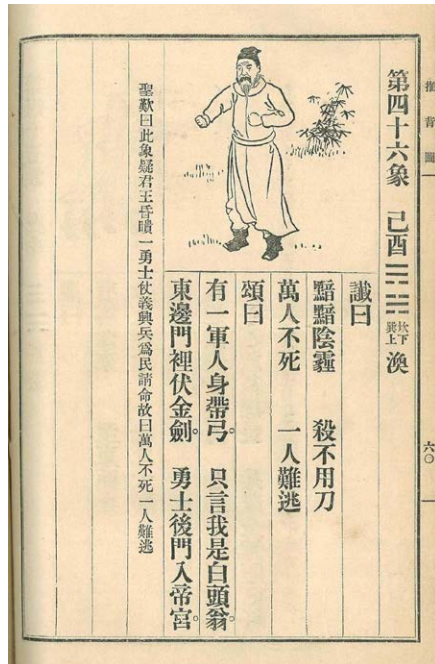 推背圖
第四十六象 己酉 坎下巽上 渙
六〇
讖曰
黯黯陰霾 殺不用刀
萬人不死 一人難逃
頌曰
有一軍人身帶弓。 只言我是白頭翁。
東邊門裡伏金劍。 勇士後門入帝宮。
聖歎曰此象疑君王昏瞶一勇士仗義興兵為民請命故曰萬人不死一人難逃